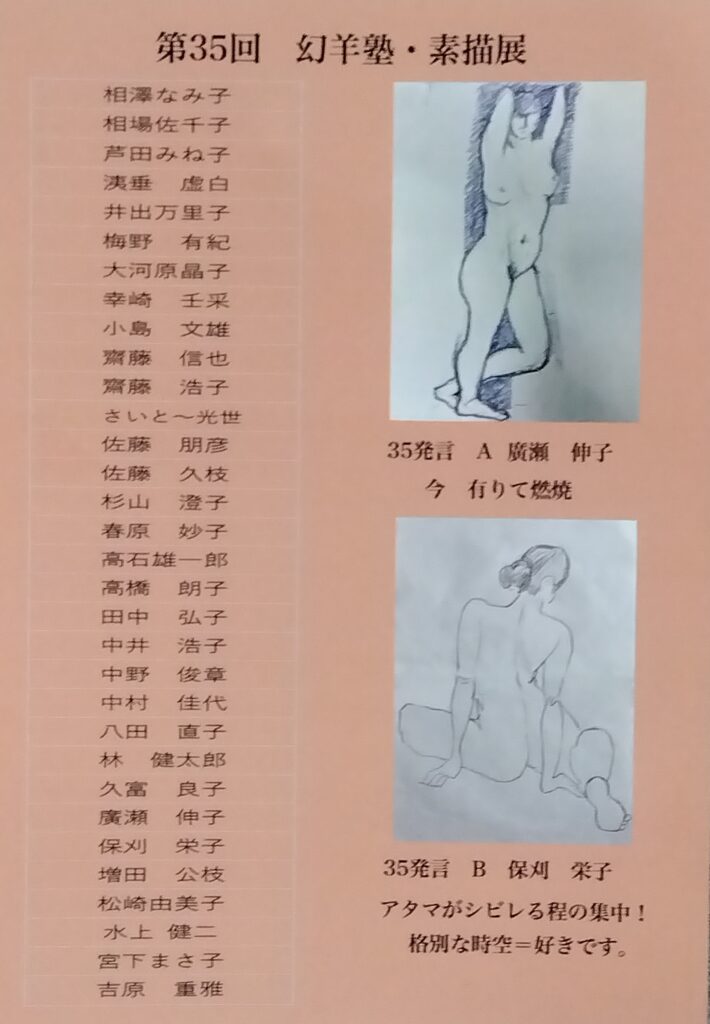 第35回　幻羊塾・素描展
相澤なみ子
相場佐千子
芦田みね子
洟垂　虚白
井出万里子
梅野　有紀
大河原晶子
幸崎　壬采
小島　文雄
齋藤　信也
齋藤　浩子
さいと〜光世
佐藤　朋彦
佐藤　久枝
杉山　澄子
春原　妙子
高石雄一郎
高橋　朗子
田中　弘子
中井　浩子
中野　俊章
中村　佳代
八田　直子
林　健太郎
久富　良子
廣瀬　伸子
保刈　栄子
増田　公枝
松崎由美子
水上 健二
宮下まさ子
吉原　重雅
35発言　A　廣瀬　伸子
今　有りて燃焼
35発言　B　保刈　栄子
アタマがシビレる程の集中！
格別な時空＝好きです。